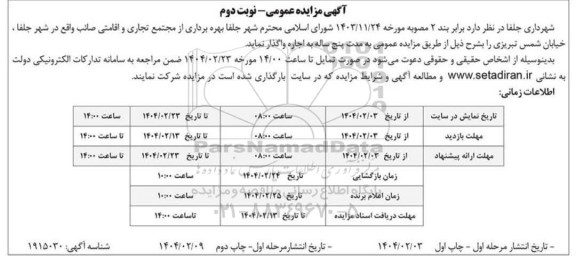 آگهی مزایده عمومی– نوبت دوم
شهرداری جلفا در نظر دارد برابر بند ۲ مصوبه مورخه ۱۴۰۳/۱۱/۲۴ شورای اسلامی محترم شهر جلفا بهره برداری از مجتمع تجاری و اقامتی صائب واقع در شهر جلفا ،
خیابان شمس تبریزی را بشرح ذیل از طریق مزایده عمومی به مدت پنج ساله به اجاره واگذار نماید.
بدینوسیله از اشخاص حقیقی و حقوقی دعوت می‌شود در صورت تمایل تا ساعت ۱۴/۰۰ مورخه ۱۴۰۴/۰۲/۲۳ ضمن مراجعه به سامانه تدارکات الکترونیکی دولت
به نشانی www.setadiran.ir و مطالعه آگهی و شرایط مزایده که در سایت بارگذاری شده است در مزایده شرکت نمایند.
اطلاعات زمانی:
تاریخ نمایش در سایت از تاریخ ۱۴۰۴/۰۲/۰۳ ساعت ۰۸:۰۰ تا تاریخ ۱۴۰۴/۰۲/۲۳ ساعت ۱۴:۰۰
مهلت بازدید از تاریخ ۱۴۰۴/۰۲/۰۳ ساعت ۰۸:۰۰ تا تاریخ ۱۴۰۴/۰۲/۱۳ ساعت ۱۴:۰۰
مهلت ارائه پیشنهاد از تاریخ ۱۴۰۴/۰۲/۰۳ ساعت ۰۸:۰۰ تا تاریخ ۱۴۰۴/۰۲/۲۳ تا ساعت ۱۴:۰۰
زمان بازگشایی تاریخ ۱۴۰۴/۰۲/۲۴ ساعت ۱۰:۰۰
زمان اعلام برنده تاریخ ۱۴۰۴/۰۲/۲۵ ساعت ۱۰:۰۰
مهلت دریافت اسناد مزایده تا تاریخ ۱۴۰۴/۰۲/۱۳ تاساعت ۱۴:۰۰
ParsNamadData
پایگاه اطلاع رسانی مناقصه و مزایده
۰۲۱-۸۸۳۴۹۶۷۰-۵
- تاریخ انتشار مرحله اول- چاپ اول ۱۴۰۴/۰۲/۰۳ - تاریخ انتشارمرحله اول- چاپ دوم ۱۴۰۴/۰۲/۰۹ شناسه آگهی: ۱۹۱۵۰۳۰